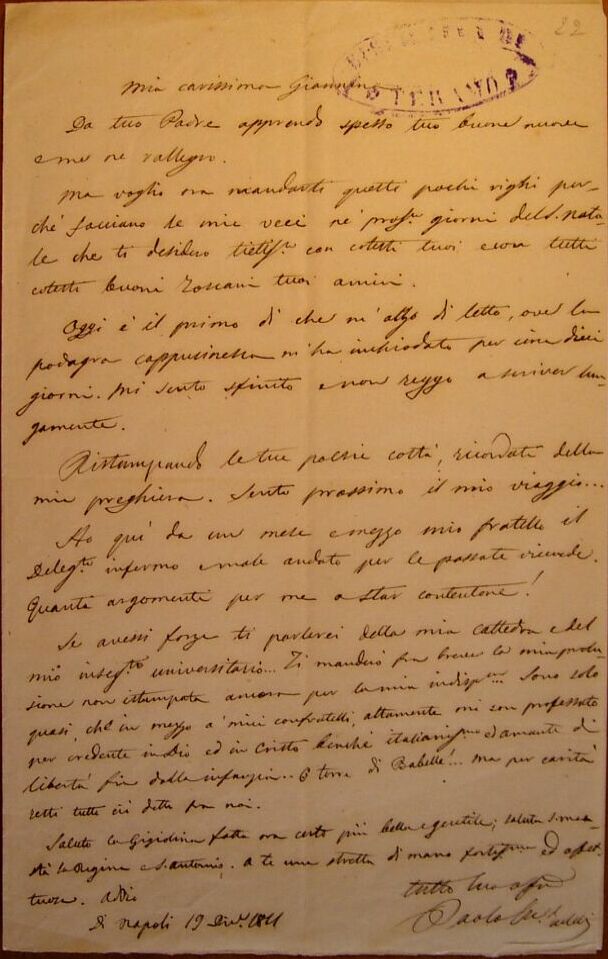 22
TERAMO
Mia carissima Giannina
Da tuo Padre apprendo spesso tue buone nuove
e me ne rallegro.
Ma voglio ora mandarti questi pochi righi per-
chè facciano le mie veci ne' prossi giorni del S. Nata-
le che ti desidero con cotesti tuoi e con tutti
cotesti buoni Toscani tuoi amici.
Oggi è il primo dì che m'alzo di letto, ove la
podagra m'ha inchiodato per circa dieci
giorni. Mi sento sfinito e non reggo a scriver lun-
gamente.
Ristampando le tue poesie costà, ricordati della
mia preghiera. Sento prossimo il mio viaggio...
Ho quì da un mese e mezzo mio fratello il
Delegto infermo e male andato per le passate vicende.
Quanti argomenti per me a star contentone!
Se avessi forze ti parlerei della mia Cattedra e del
mio insegto universitario... Ti manderò fra breve la mia prolu-
sione non istampata ancora per la mia indispne... Sono solo
quasi, chè in mezzo a' miei confratelli, altamente mi son professato
per credente in Dio ed in Cristo benchè italianismo ed amante di
libertà fin dalla infanzia.. O torre di Babelle!... Ma per carità
resti tutto ciò detto fra noi.
Saluto la Gigidina fatta ora certo più bella e gentile; saluta S. Mae-
stà la Regina e S. Antonio. A te una stretta di mano fortissma ed affet-
tuosa. Addio
Di Napoli 19 Dice
tutto tuo affmo
Paolo